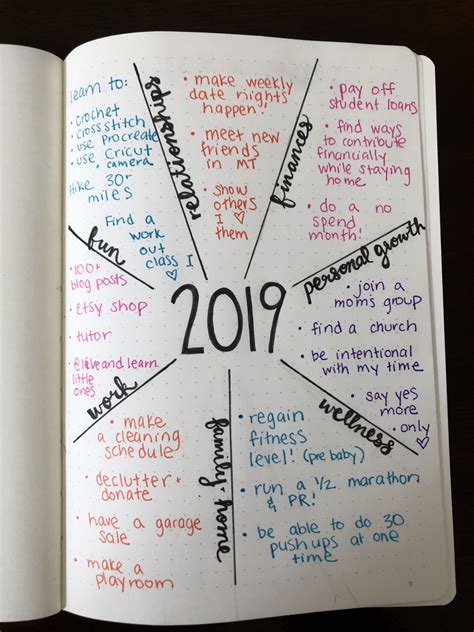 learn to:
• crochet
• cross stitch
• use Procreate
• use Cricut
+ camera
Hike 30+
miles
Find a
work
out
class I
♡
fun
• make weekly
date nights
happen!
• meet new
friends
in MT
• show
others
I ♡
them
relationships
• pay off
student loans
• find ways
to contribute
financially
while staying
home
• do a no
spend
month!
finances
• join a
mom's group
• find a church
• be intentional
with my time
• say yes
more
• only
♡
personal growth
2019
• 100+
blog posts
• Etsy shop
• tutor
• @liveandlearn
little
ones
work
• make
a cleaning
schedule
• declutter +
donate
• have a garage
sale
• make a
playroom
family + home
• regain
fitness
level! (pre baby)
• run a 1/2 marathon
& PR!
• be able to do 30
push ups at one
time
wellness